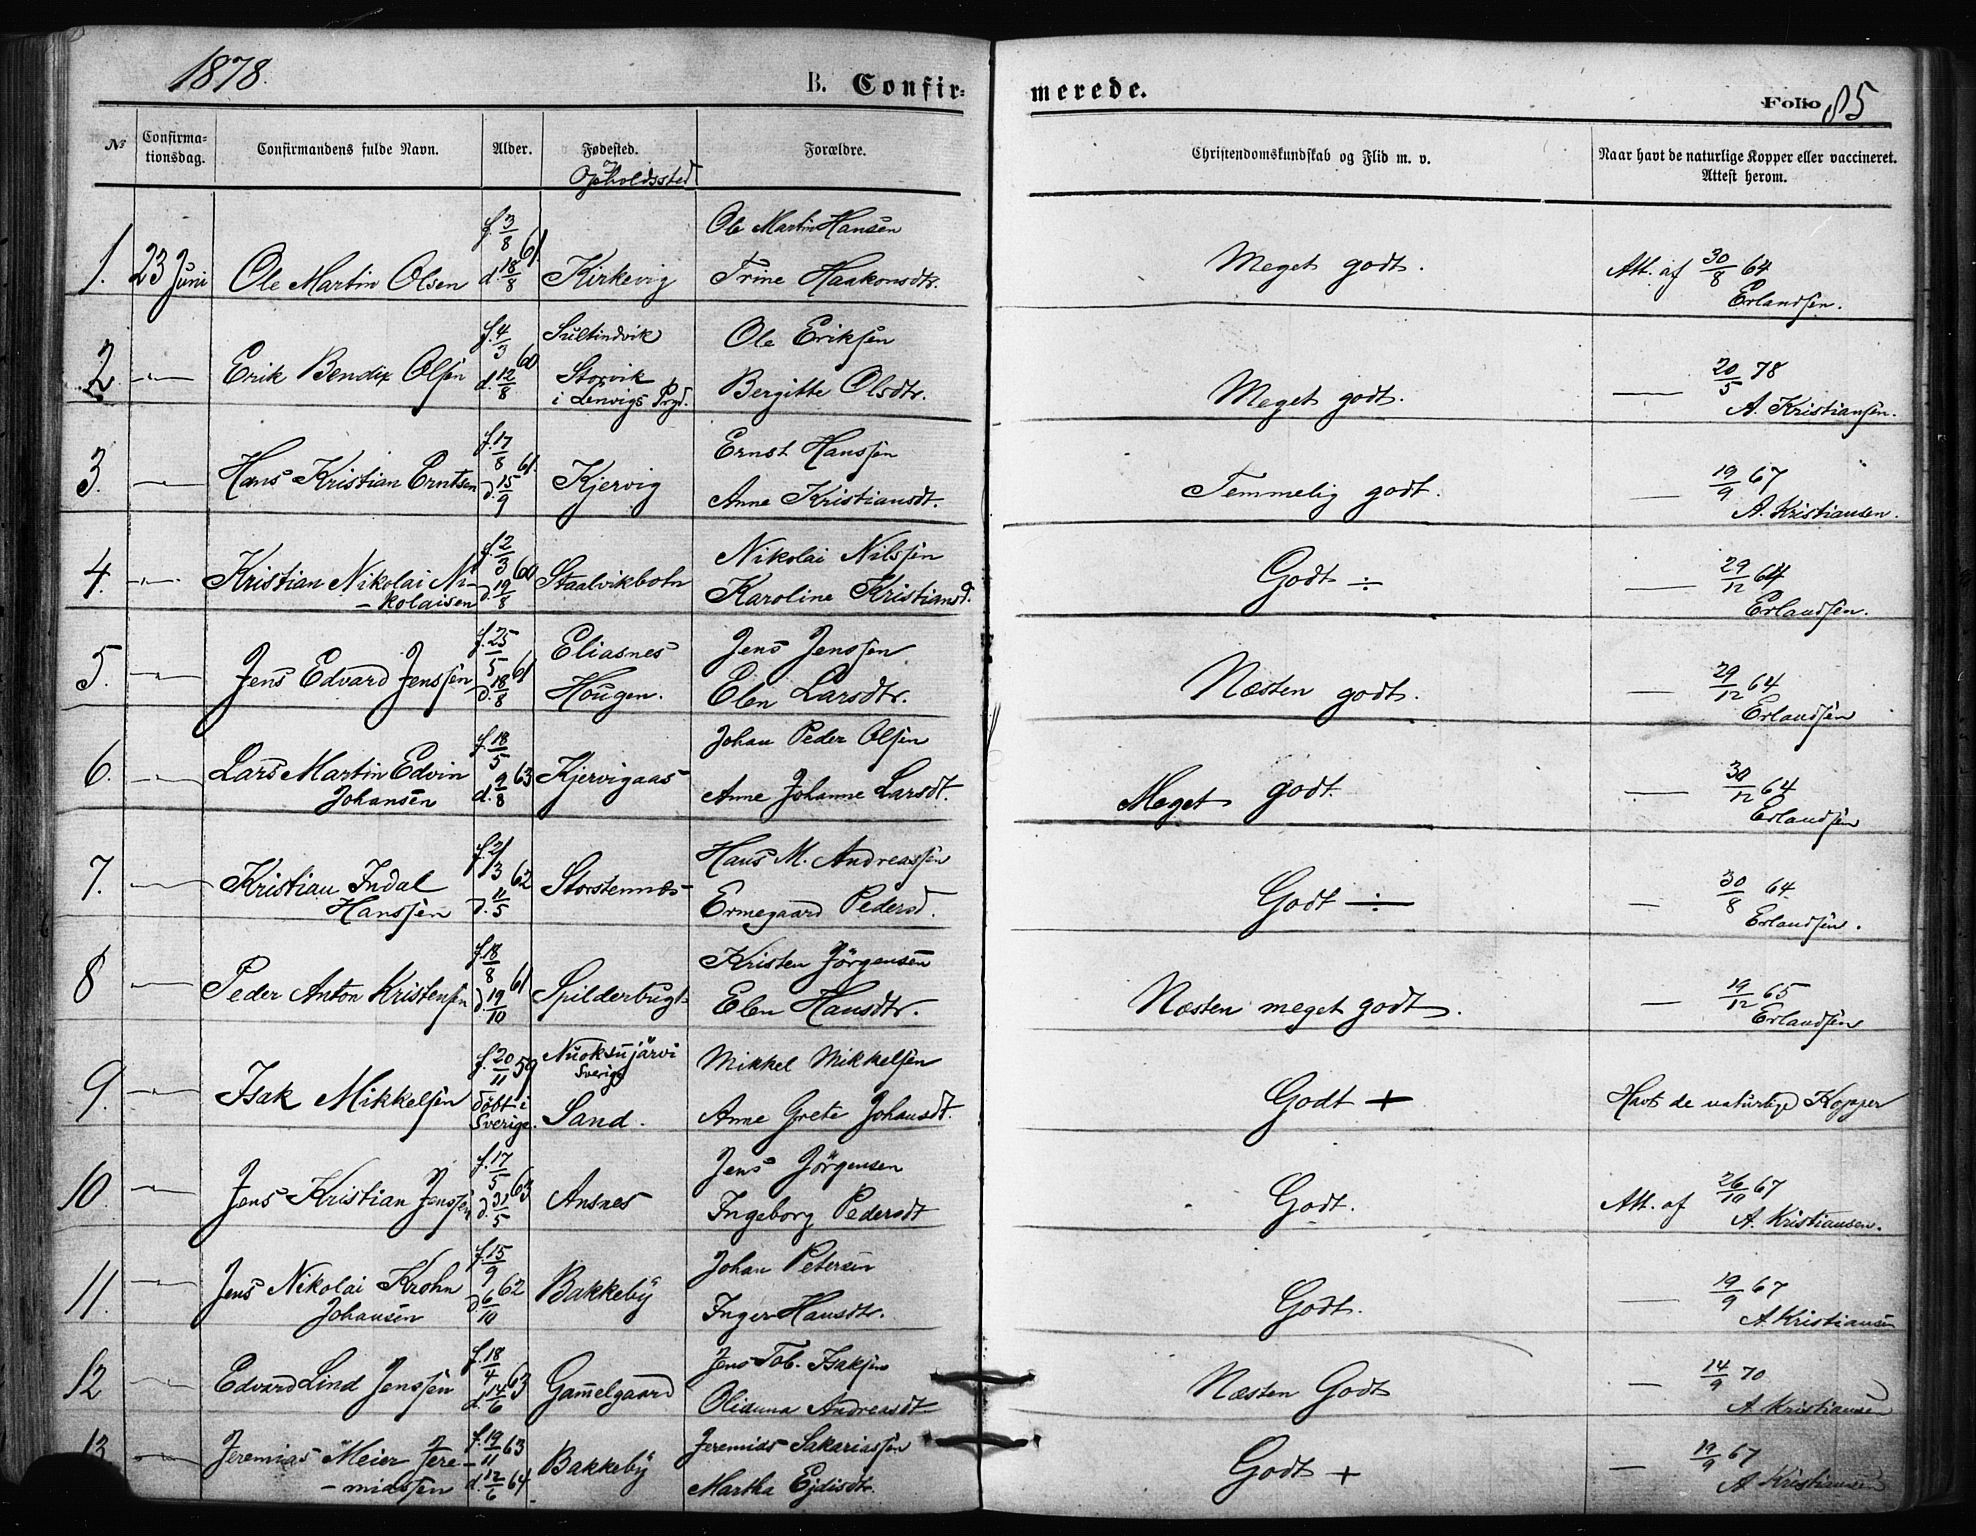 1878.
B. Confir-
merede.
Folio 85
No
Confirma-
tionsdag.
Confirmandens fulde Navn.
Alder.
Fødested.
Opholdssted
Forældre.
Christendomskundskab og Flid m. v.
Naar havt de naturlige Kopper eller vaccineret.
Attest herom.
1. 23 Juni Ole Martin Olsen f. 3/8 61 d. 18/8 Kirkevig
Ole Martin Hansen
Trine Haakonsdtr.
Meget godt.
Att. af 30/8 64
Erlandsen.
2 —"— Erik Bendix Olsen f. 4/3 60 d. 12/8
Sultindvik
Storvik
i Lenvigs Prgd.
Ole Eriksen
Bergitte Olsdtr.
Meget godt.
— 20/5 78
A. Kristiansen.
3. —"— Hans Kristian Erntsen f. 17/8 61. d. 15/9 Kjervig
Ernst Hanssen
Anne Kristiansdt.
Temmelig godt.
— 19/9 67
A. Kristiansen.
4. —"— Kristian Nikolai Ni-
- kolaisen f. 2/3 60 d. 19/8 Staalvikbotn
Nikolai Nilssen
Karoline Kristiansd.
Godt ÷
— 29/12 64
Erlandsen.
5. —"— Jens Edvard Jenssen f. 25/5 61 d. 18/8
Eliasnes
Hougen.
Jens Jenssen
Elen Larsdtr.
Næsten godt.
— 29/12 64
Erlandsen
6. —"— Lars Martin Edvin
Johansen f. 18/5 63 d. 9/8 Kjervigaas
Johan Peder Olsen
Anne Johanne Larsdt.
Meget godt.
— 30/12 64
Erlandsen
7. —"— Kristian Indal
Hanssen f. 2/3 62 d. 11/5 Storstennæs
Hans M. Andreassen
Ermegaard Pedersd.
Godt ÷
— 30/8 64.
Erlandsen.
8 —"— Peder Anton Kristensen f. 18/8 61 d. 19/10 Spilderbugt
Kristen Jörgensen
Elen Hansdtr.
Næsten meget godt.
— 19/12 65
Erlandsen
9. —"— Isak Mikkelsen f. 20/11 59
döbt i
Sverige.
Nuoksujärvi
Sverige
Sand.
Mikkel Mikkelsen
Anne Grete Johansdt.
Godt +
Havt de naturlige Kopper
10. —"— Jens Kristian Jenssen f. 17/5 63 d. 31/5 Ansnes
Jens Jörgensen
Ingeborg Pedersdt
Godt.
Att. af 26/10 67
A. Kristiansen.
11. —"— Jens Nikolai Krohn
Johansen f. 15/9 62 d. 6/10 Bakkeby
Johan Petersen
Inger Hansdtr.
Godt.
— 19/9 67
A. Kristiansen
12 —"— Edvard Lind Jenssen f. 18/4 63 d. 14/6 Gammelgaard
Jens Tob. Isaksen
Olianna Andreasdt
Næsten Godt
— 14/9 70
A. Kristiansen
13 —"— Jeremias Meier Jere-
- miassen f. 19/11 63 d. 12/6 64 Bakkeby
Jeremias Sakariassen
Martha Ejdisdtr.
Godt +
— 19/9 67
A. Kristiansen